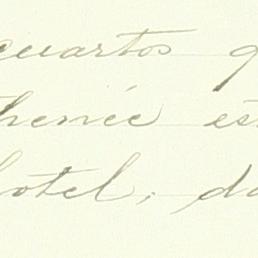 quartos q
thenée es
hotel, da